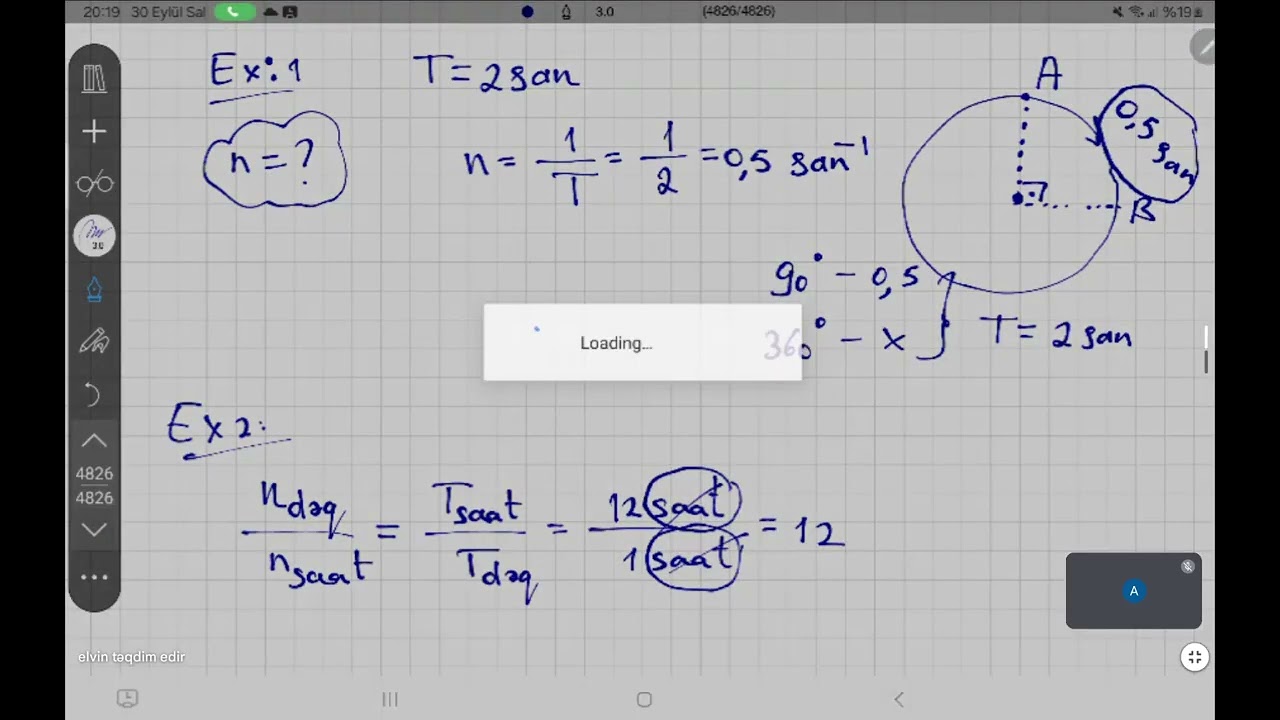 20:19 30 Eylül Sal 3.0 (4826/4826) %19
Ex: 1 T = 2 san
n = ?
n = 1/T = 1/2 = 0,5 san⁻¹
A
0,5 san
B
90° – 0,5
360° – x
T = 2 san
Loading...
3.0
Ex 2:
n dəq / n saat = T saat / T dəq = 12 saat / 1 saat = 12
4826
4826
A
elvin təqdim edir